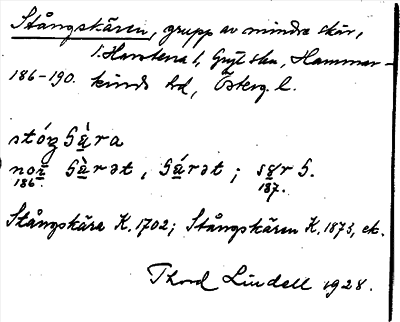 Stångskären, grupp av mindre skär,
i Harstena l, Gryt skn, Hammar-
186-190. kinds hd, Österg. l.
stóg Sȧ̀ra
Sȧ̀rət, Sárət; S.
186. 187.
Stångskära K. 1702; Stångskären K. 1873, ek.
Thord Lindell 1928.